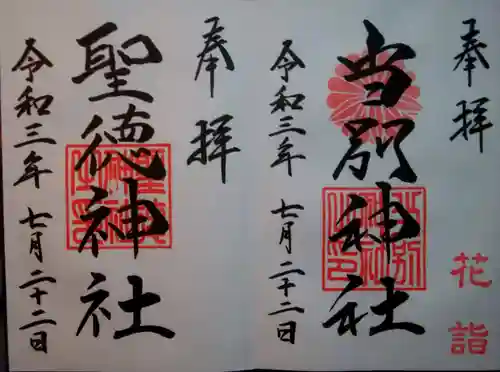 奉拝
花詣
当別神社
令和三年 七月二十二日
奉拝
聖徳神社
令和三年 七月二十二日